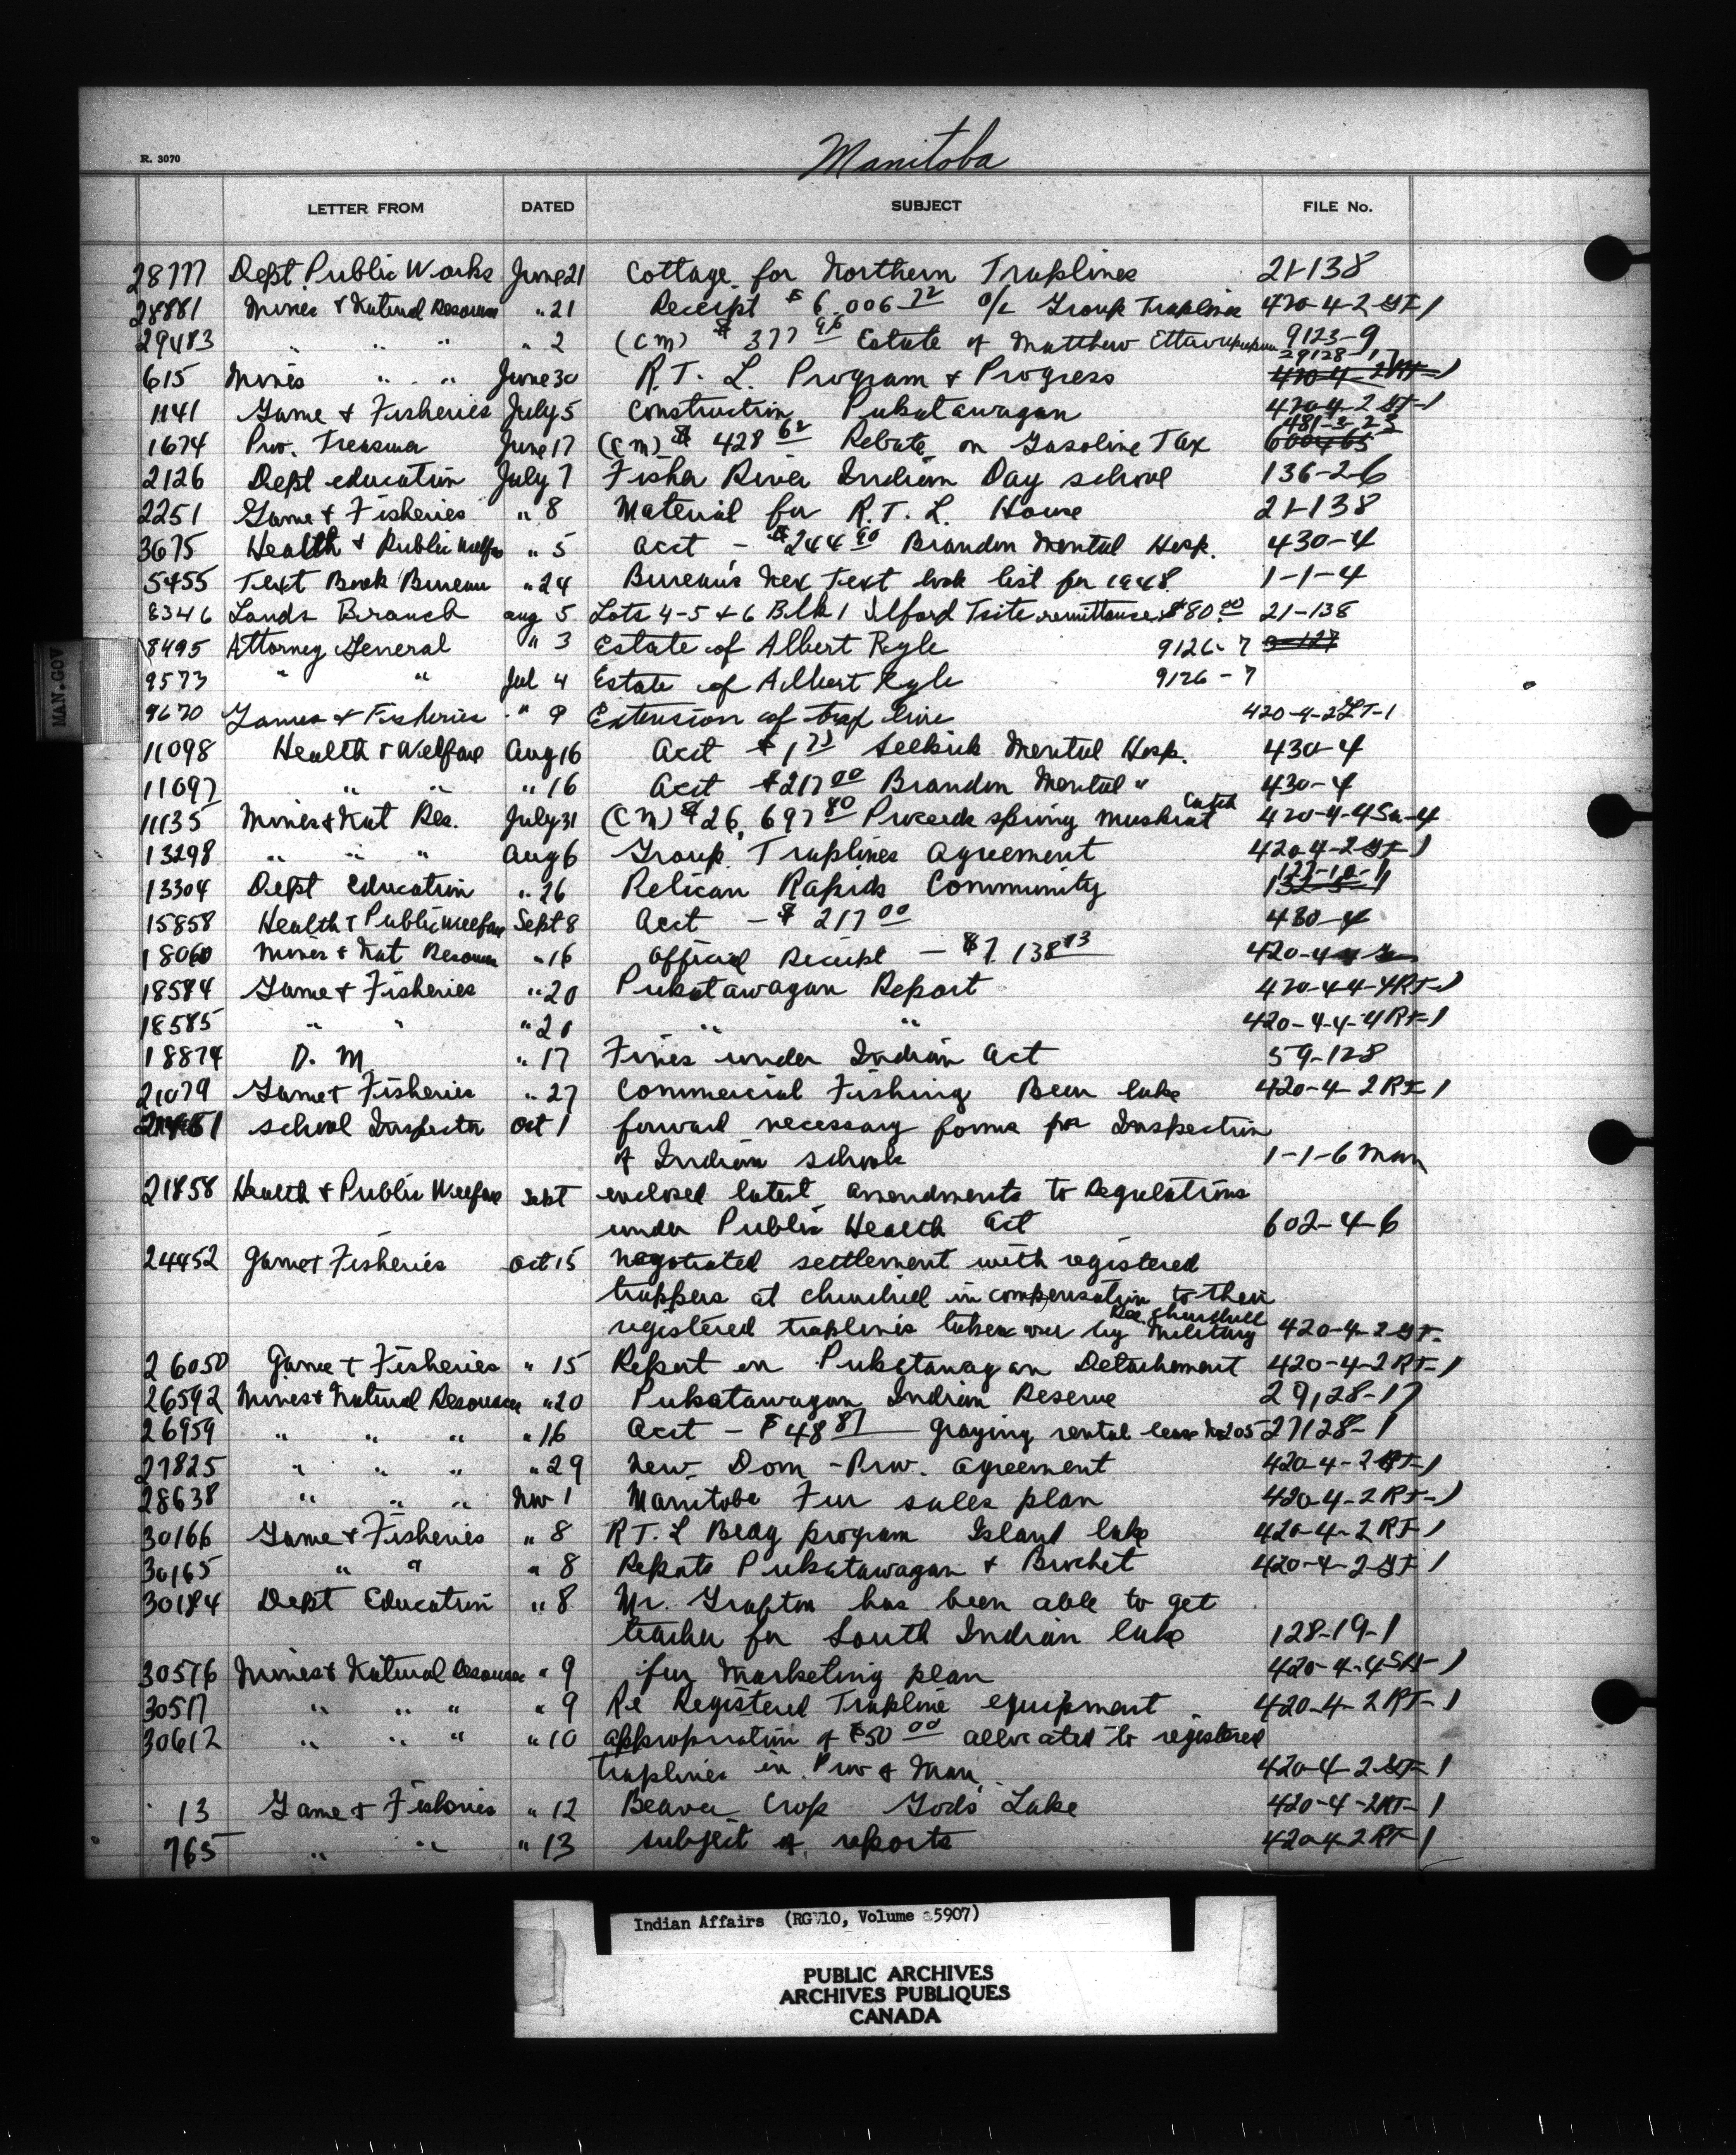 Manitoba
R. 3070
LETTER FROM DATED SUBJECT FILE No.
28777 Dept. Public Works June 21 Cottage for Northern Traplines 21-138
28881 Mines & Natural Resources " 21 Receipt $6,006 72 o/c Group Traplines 420-4-2 GT-1
29483 " " " " 2 (CM) $377 96 Estate of Matthew 9123-9
29128-17
615 Mines " " " June 30 R.T.L. Program & Progress 420-4-2 RT-1
1141 Game & Fisheries July 5 Construction Pukatawagan 420-4-2 GT-1
481-3-23
1674 Prov. Treasurer June 17 (CM) $428 62 Rebate on Gasoline Tax
2126 Dept education July 7 Fisher River Indian Day school 136-2-6
2251 Game & Fisheries " 8 Material for R.T.L. House 21-138
3675 Health & Public Welfare " 5 Acct - $244 90 Brandon Mental Hosp. 430-4
5455 Text Book Bureau " 24 Bureau's Nex Text book list for 1948. 1-1-4
8346 Lands Branch aug 5 Lots 4-5 & 6 Blk 1 Ilford Tsite remittance $80.00 21-138
8495 Attorney General " 3 Estate of Albert Kyle 9126-7
9573 " " Jul 4 Estate of Albert Kyle 9126-7
9670 Games & Fisheries " 9 Extension of trap line 420-4-2LT-1
11098 Health & Welfare Aug 16 Acct $1 75 Selkirk Mental Hosp. 430-4
11097 " " " 16 Acct $217 00 Brandon Mental " 430-4
11135 Mines & Nat Res. July 31 (CM) $26,697 80 Proceeds spring muskrat Catch 420-4-4Sa-4
13298 " " " Aug 6 Group Traplines Agreement 420-4-2 GT-1
127-10-1
13304 Dept Education " 26 Pelican Rapids Community
15858 Health & Public Welfare Sept 8 Acct - $217 00 430-4
18060 Mines & Nat Resources " 16 Official Receipt - $7,138 13 420-4-4
18584 Game & Fisheries " 20 Pukatawagan Report 420-4-4-4RT-1
18585 " " " 20 " " 420-4-4-4RT-1
18874 D. M. " 17 Fines under Indian Act 59-128
21079 Game & Fisheries " 27 Commercial Fishing Bear lake 420-4-2RT-1
school Inspector Oct 1 forward necessary forms for Inspection
of Indian schools 1-1-6 Man
21858 Health & Public Welfare Sept enclosed latest amendments to Regulations
under Public Health Act 602-4-6
24452 Game & Fisheries Oct 15 Negotiated settlement with registered
trappers at churchill in compensation to their
registered traplines taken over by Military Re. Churchill 420-4-2 GT-
26050 Game & Fisheries " 15 Report on Pukatawagan Detachement 420-4-2RT-1
26592 Mines & Natural Resources " 20 Pukatawagan Indian Reserve 29,28-17
26959 " " " " 16 Acct - $48 87 grazing rental lease No 205 27128-1
27825 " " " " 29 New Dom-Prov. agreement 420-4-2RT-1
28638 " " " Nov 1 Manitoba Fur sales plan 420-4-2RT-1
30166 Game & Fisheries " 8 RT.L Beag program Island lake 420-4-2RT-1
30165 " " " 8 Reports Pukatawagan & Brochet 420-4-2-GT-1
30184 Dept Education " 8 Mr. Grafton has been able to get
teacher for South Indian lake 128-19-1
30576 Mines & Natural Resources " 9 fur Marketing plan 420-4-4SA-1
30577 " " " " 9 Re Registered Trapline equipment 420-4-2RT-1
30612 " " " " 10 appropriation of $50 00 allocated to registered
traplines in Prov of Man. 420-4-2-GT-1
13 Game & Fisheries " 12 Beaver Crop Gods Lake 420-4-2RT-1
765 " " " 13 subject of reports 420-4-2RT-1
MAN.GOV
Indian Affairs (RG 10, Volume 5907)
PUBLIC ARCHIVES
ARCHIVES PUBLIQUES
CANADA